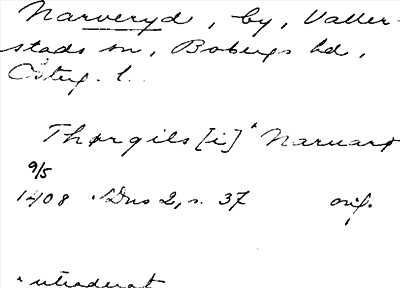 Narveryd, by, Valler-
stads sn, Bobergs hd,
Österg. l.
Thorgils [i] ˣ Naruaro
9/5
1408 SDns 2, s. 37 orig.
ˣ utraderat